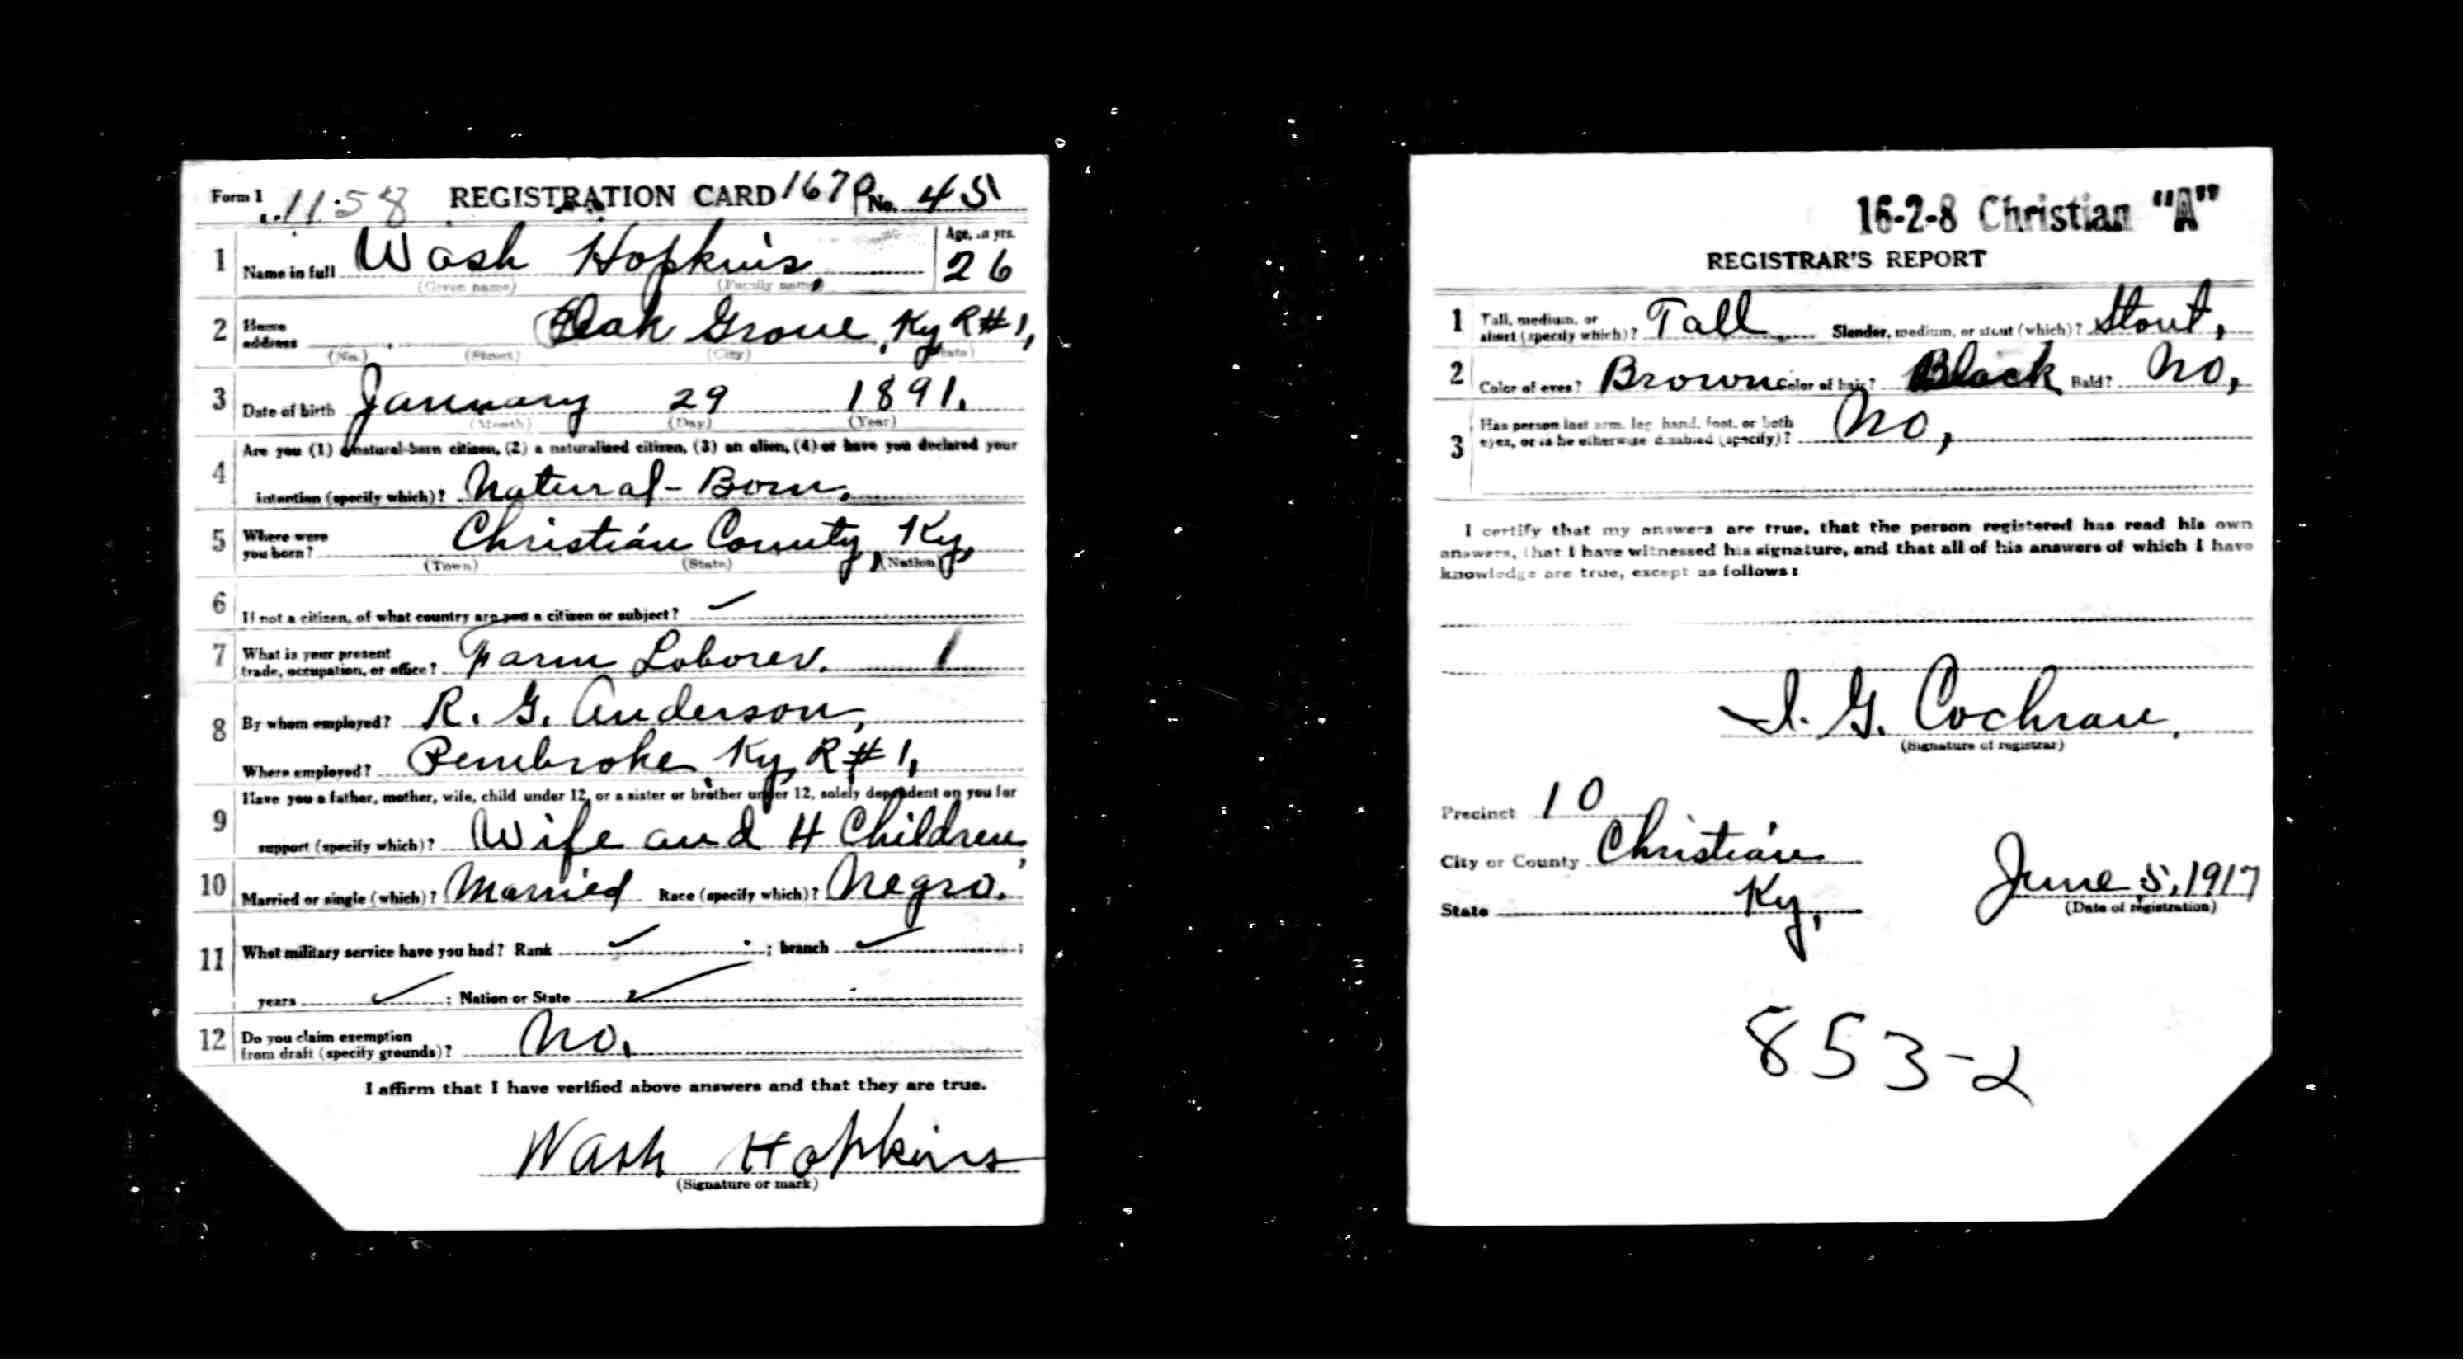 Form 1 1158 REGISTRATION CARD 167 No. 45
1 Name in full Wash Hopkins, Age, in yrs. 26
(Given name) (Family name)
2 Home address Oak Grove, Ky R#1,
(No.) (Street) (City) (State)
3 Date of birth January 29 1891.
(Month) (Day) (Year)
4 Are you (1) a natural-born citizen, (2) a naturalized citizen, (3) an alien, (4) or have you declared your
intention (specify which)? Natural-Born.
5 Where were you born? Christian County, Ky,
(Town) (State) (Nation)
6 If not a citizen, of what country are you a citizen or subject? ✓
7 What is your present trade, occupation, or office? Farm Laborer. 1
8 By whom employed? R. G. Anderson,
Where employed? Pembroke, Ky, R#1,
9 Have you a father, mother, wife, child under 12, or a sister or brother under 12, solely dependent on you for
support (specify which)? Wife and 4 Children,
10 Married or single (which)? Married Race (specify which)? Negro.
11 What military service have you had? Rank ✓ ; branch ✓ ;
years ✓ ; Nation or State ✓
12 Do you claim exemption from draft (specify grounds)? No.
I affirm that I have verified above answers and that they are true.
Wash Hopkins
(Signature or mark)
16-2-8 Christian "A"
REGISTRAR'S REPORT
1 Tall, medium, or short (specify which)? Tall Slender, medium, or stout (which)? Stout,
2 Color of eyes? Brown Color of hair? Black Bald? No,
3 Has person lost arm, leg, hand, foot, or both eyes, or is he otherwise disabled (specify)? No,
I certify that my answers are true, that the person registered has read his own
answers, that I have witnessed his signature, and that all of his answers of which I have
knowledge are true, except as follows:
I. G. Cochran,
(Signature of registrar)
Precinct 10
City or County Christian
State Ky,
June 5, 1917
(Date of registration)
853-2